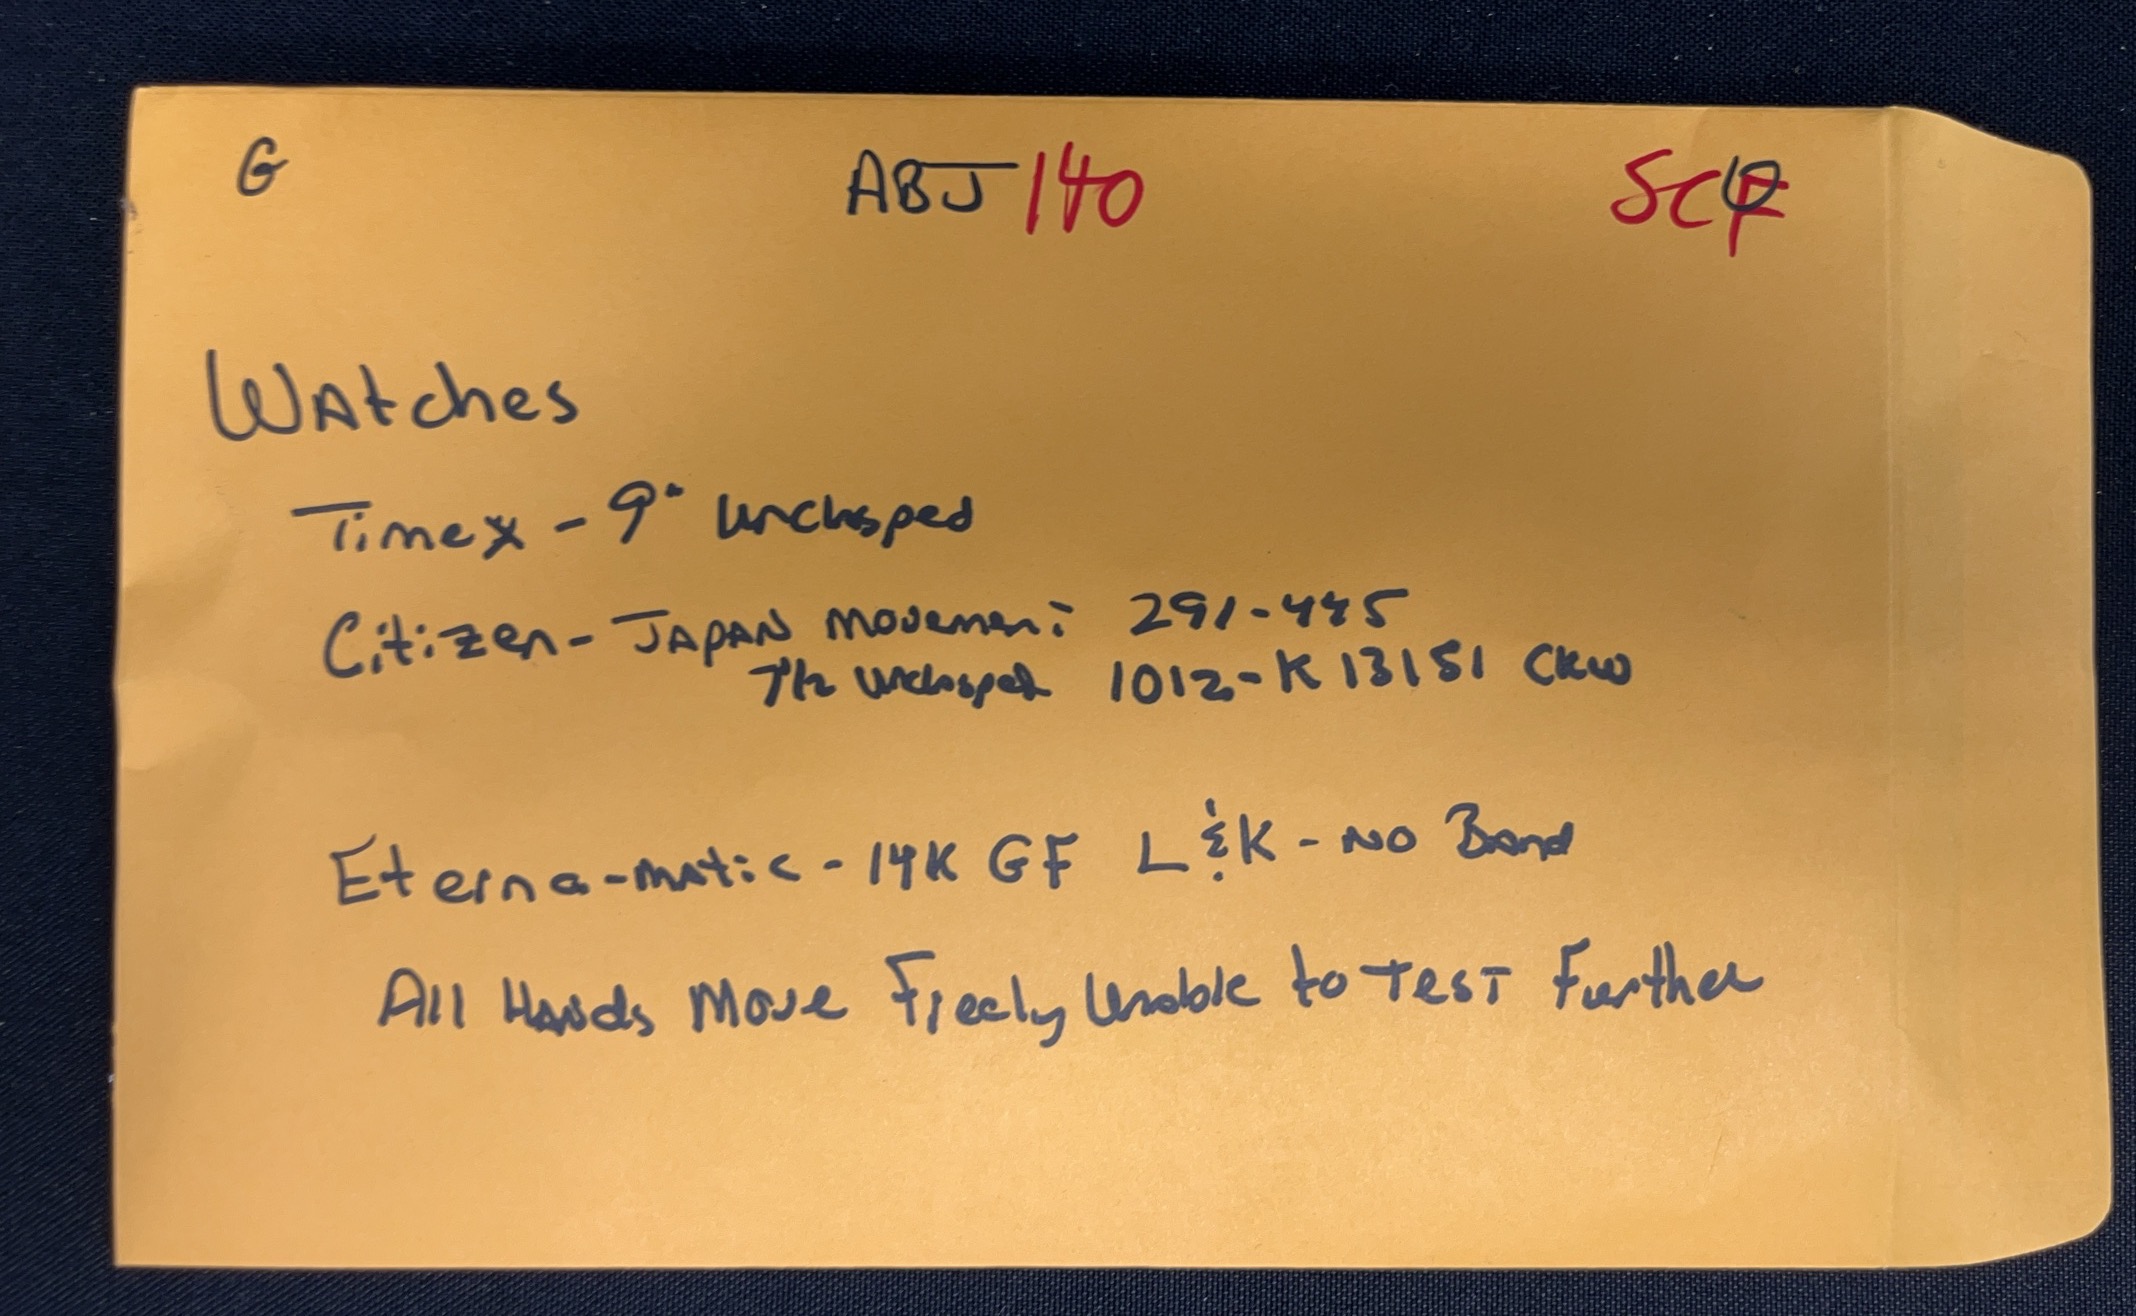 G ABJ 140 SC
Watches
Timex - 9" Unclasped
Citizen - Japan Movement 291-445
7 1/2 Unclasped 1012-K13151 CKW
Eterna-matic - 14K GF L&K - No Band
All Hands Move Freely Unable to Test Further